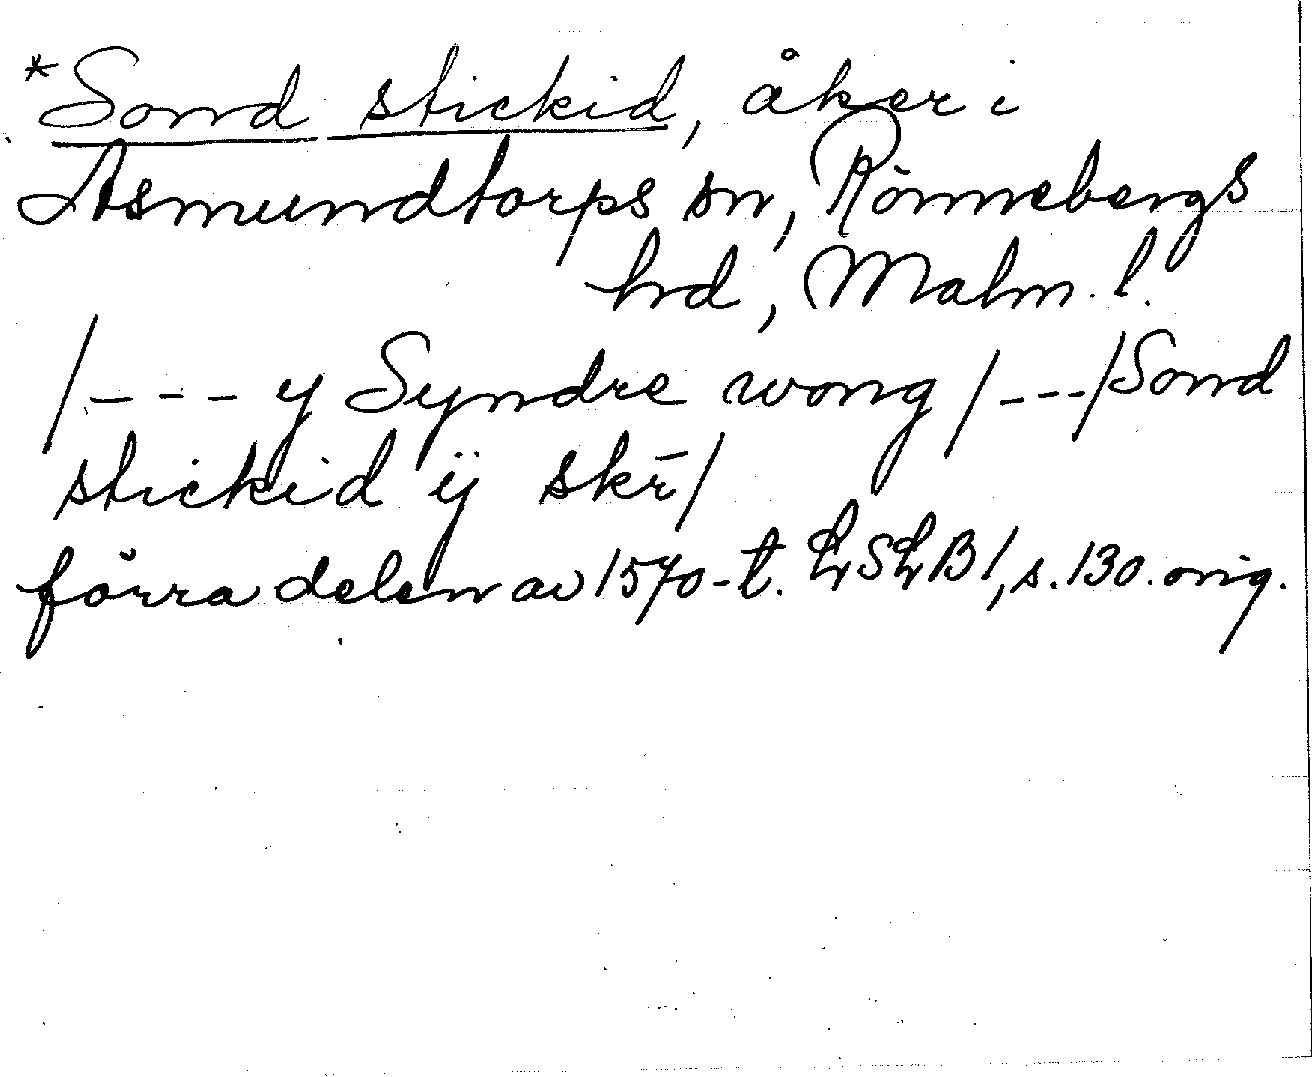 *Sond stickid, åker i
Asmundtorps sn, Rönnebergs
hd, Malm. l.
/ - - - y Syndre wong / - - - / Sond
stickid ÿ skr̄ /
förra delen av 1570-t. LSLB 1, s. 130. orig.